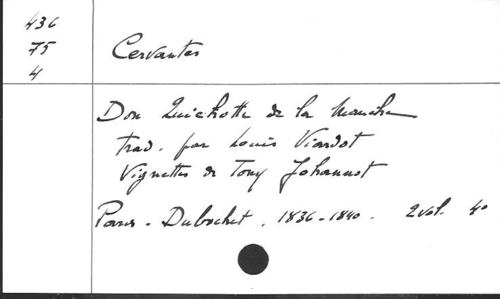 436
75
4
Cervantes
Don Quichotte de la Manche
trad. par Louis Viardot
Vignettes de Tony Johannot
Paris - Dubochet. 1836-1840. 2 vol. 4o